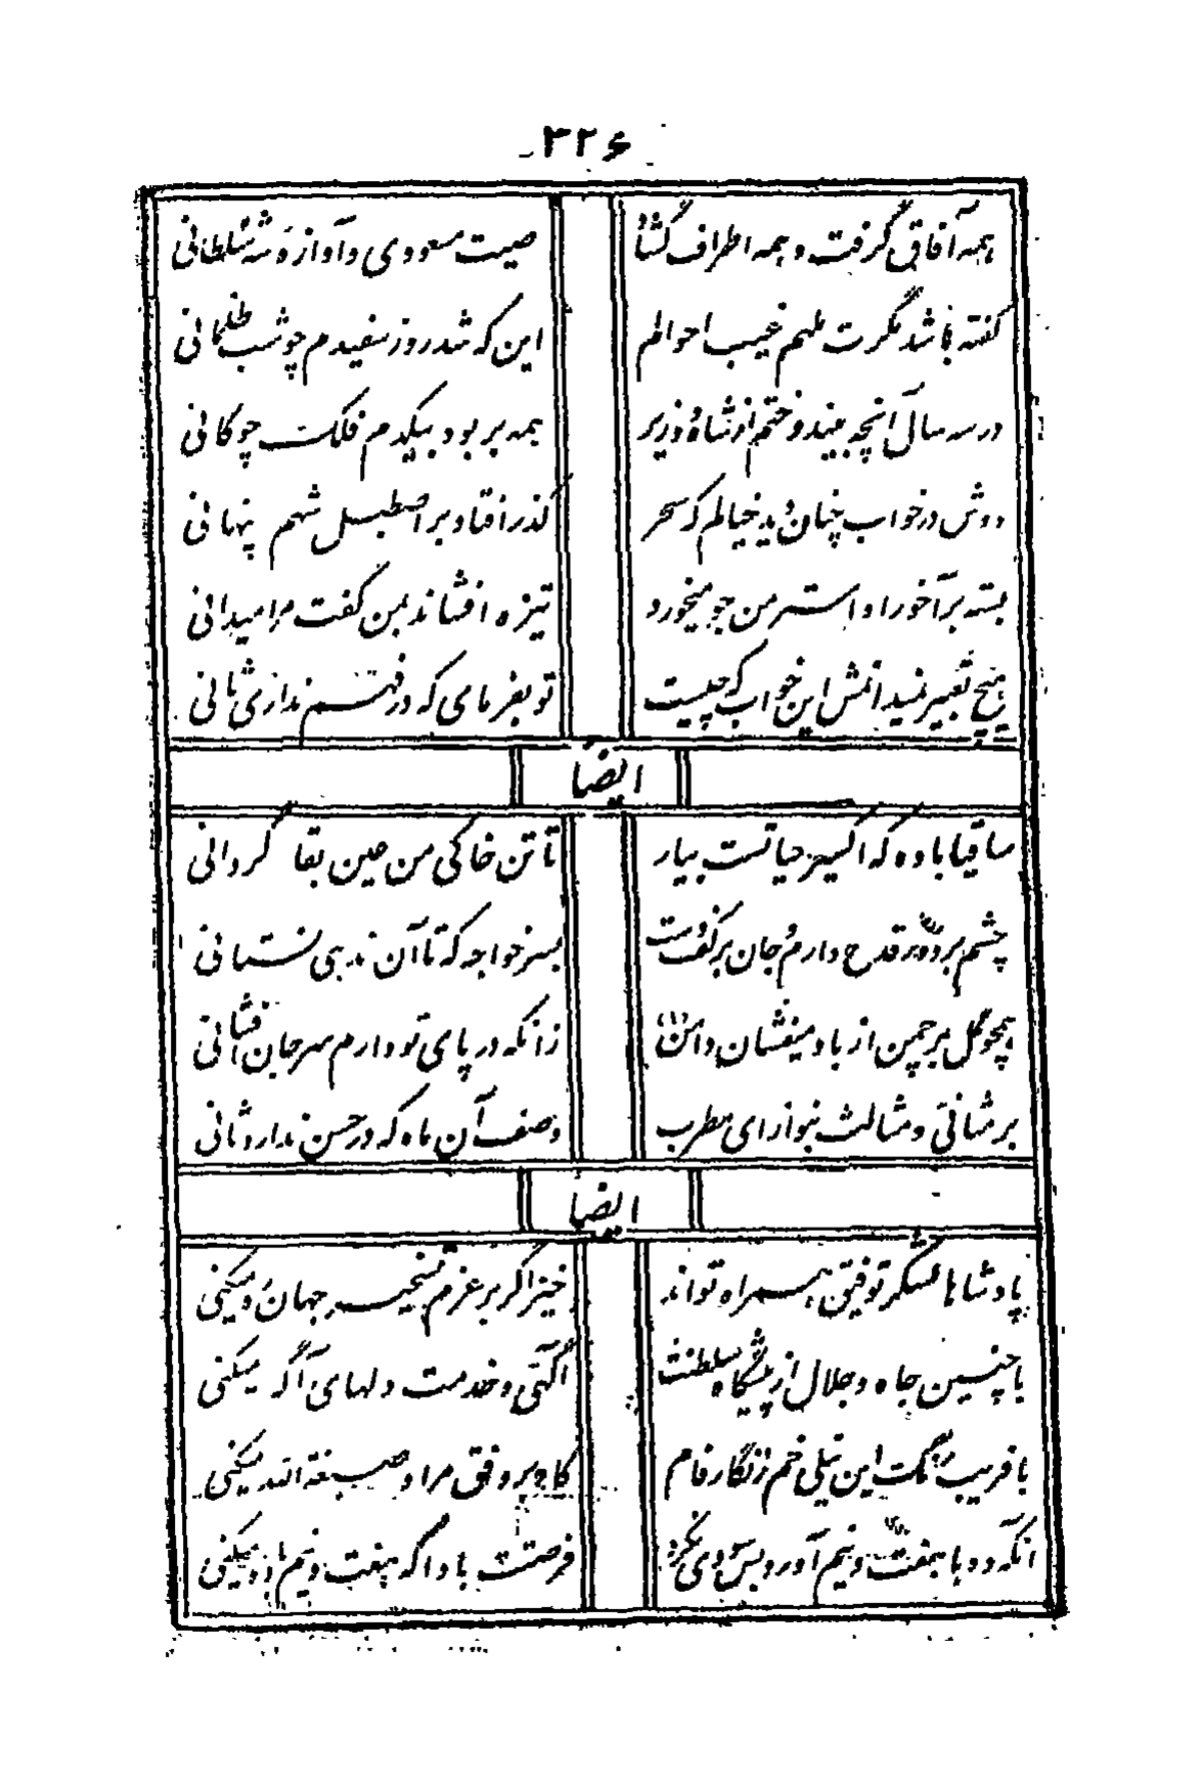 ۳۲۶
همه آفاق گرفت و همه اطراف گشاد صیت مسعودی و آوازه شه سلطانی
گفته باشد مگرت ملهم غیب احوالم این که شد روز سفیدم چو شب ظلمانی
در سه سال آنچه بیندوختم از شاه و وزیر همه بربود بیکدم فلک چوکانی
دوش در خواب چنان دید خیالم که سحر گذر افتاد بر اصطبل شهم پنهانی
بسته بر آخور او استر من جو میخورد تیزه افشاند بمن گفت مرا میدانی
هیچ تعبیر نمیدانمش این خواب که چیست تو بفرمای که در فهم نداری ثانی
ایضا
ساقیا باده که اکسیر حیاتست بیار تا تن خاکی من عین بقا گردانی
چشم بر دور قدح دارم و جان بر کف دست بسر خواجه که تا آن ندهی نستانی
همچو گل بر چمن از باد میفشان دامن زانکه در پای تو دارم سر جان افشانی
بر مثانی و مثالث بنواز ای مطرب وصف آن ماه که در حسن ندارد ثانی
ایضا
پادشاها لشکر توفیق همراه تواند خیز اگر بر عزم تسخیر جهان ره میکنی
با چنین جاه و جلال از پیشگاه سلطنت آگهی و خدمت دلهای آگه میکنی
با فریب رنگ این نیلی خم زنگار فام کار بر وفق مراد صبغة الله میکنی
آنکه ده با هفت و نیم آورد بس سودی نکرد فرصتت بادا که هفت و نیم با ده میکنی